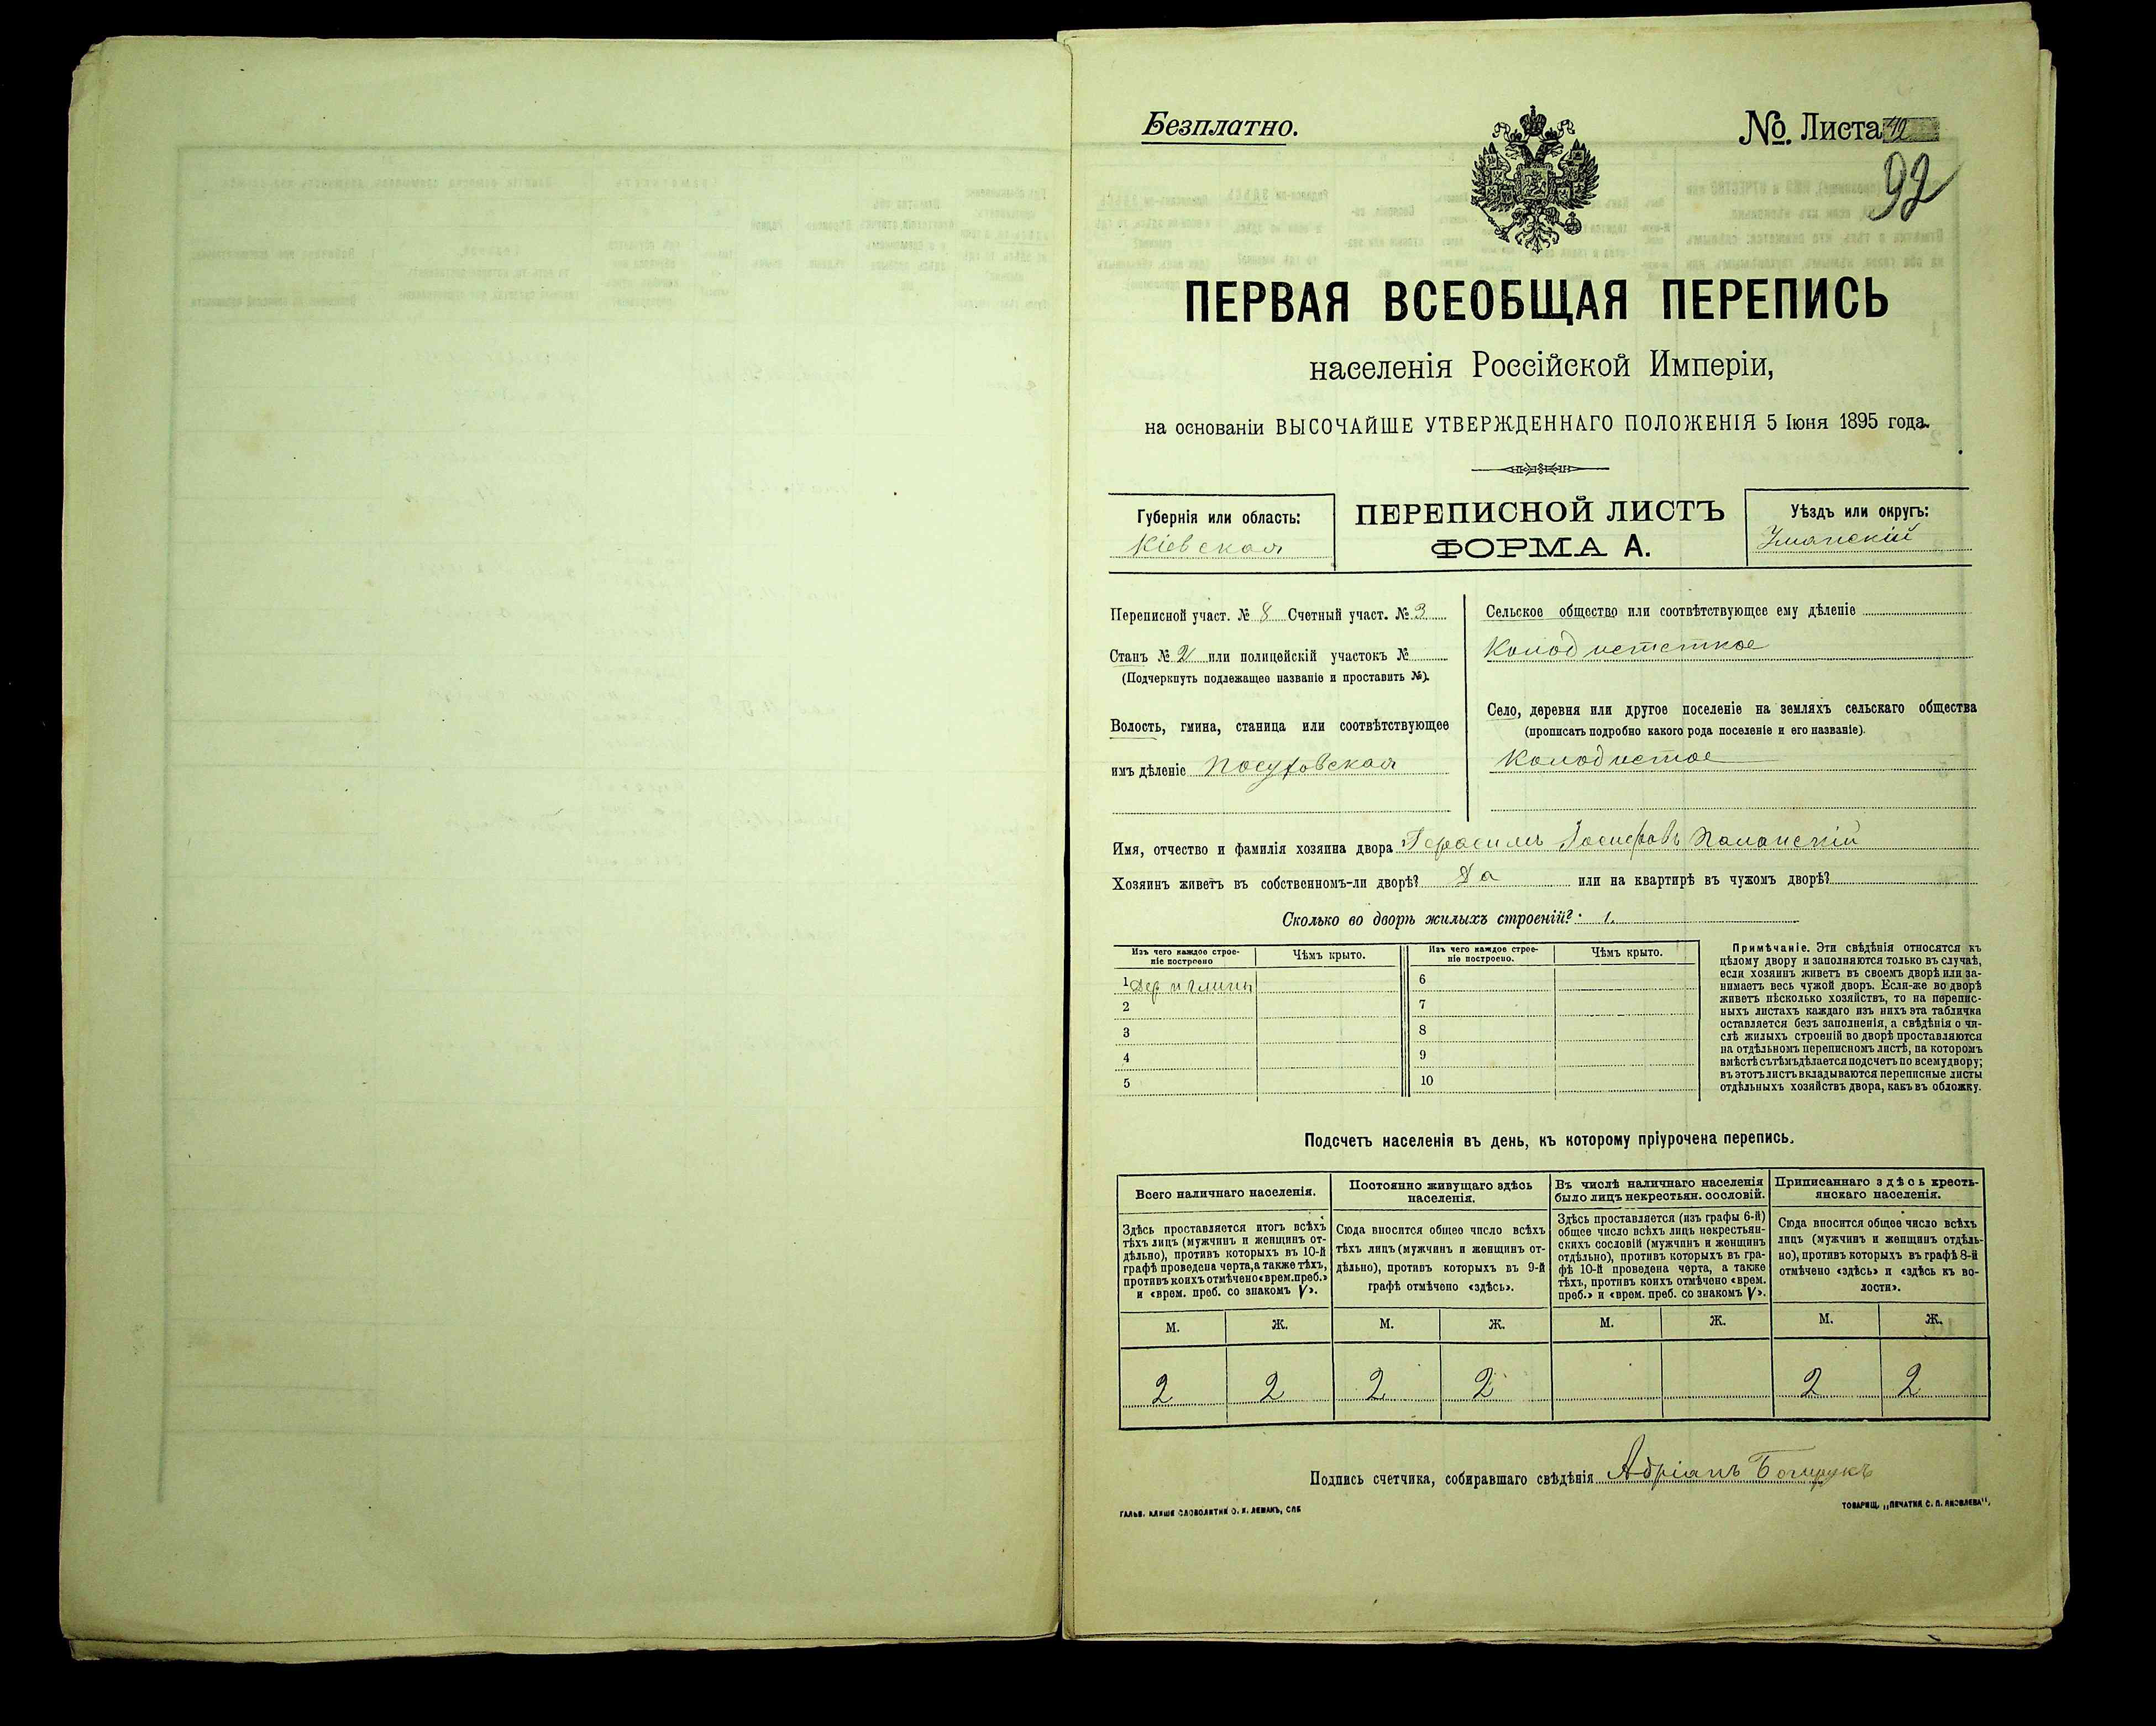 Безплатно.
№. Листа 40
92
ПЕРВАЯ ВСЕОБЩАЯ ПЕРЕПИСЬ
населенія Россійской Имперіи,
на основаніи ВЫСОЧАЙШЕ УТВЕРЖДЕННАГО ПОЛОЖЕНІЯ 5 Іюня 1895 года.
Губернія или область:
Кіевская
ПЕРЕПИСНОЙ ЛИСТЪ
ФОРМА А.
Уѣздъ или округъ:
Уманскій
Переписной участ. № 8 Счетный участ. № 3
Станъ № 2 или полицейскій участокъ №
(Подчеркнуть подлежащее названіе и проставить №).
Волость, гмина, станица или соотвѣтствующее
имъ дѣленіе Посуховская
Сельское общество или соотвѣтствующее ему дѣленіе
Колодистсткое
Село, деревня или другое поселеніе на земляхъ сельскаго общества
(прописать подробно какого рода поселеніе и его названіе).
Колодистое
Имя, отчество и фамилія хозяина двора Герасимъ Іосифовъ Паланскій
Хозяинъ живетъ въ собственномъ-ли дворѣ? Да или на квартирѣ въ чужомъ дворѣ?
Сколько во дворѣ жилыхъ строеній? 1.
Изъ чего каждое строе-
ніе построено
Чѣмъ крыто.
Изъ чего каждое строе-
ніе построено.
Чѣмъ крыто.
1 Дер и глины
2
3
4
5
6
7
8
9
10
Примѣчаніе. Эти свѣдѣнія относятся къ
цѣлому двору и заполняются только въ случаѣ,
если хозяинъ живетъ въ своемъ дворѣ или за-
нимаетъ весь чужой дворъ. Если-же во дворѣ
живетъ нѣсколько хозяйствъ, то на перепис-
ныхъ листахъ каждаго изъ нихъ эта табличка
оставляется безъ заполненія, а свѣдѣнія о чи-
слѣ жилыхъ строеній во дворѣ проставляются
на отдѣльномъ переписномъ листѣ, на которомъ
вмѣстѣ съ тѣмъ дѣлается подсчетъ по всему двору;
въ этотъ листъ вкладываются переписные листы
отдѣльныхъ хозяйствъ двора, какъ въ обложку.
Подсчетъ населенія въ день, къ которому пріурочена перепись.
Всего наличнаго населенія.
Здѣсь проставляется итогъ всѣхъ
тѣхъ лицъ (мужчинъ и женщинъ от-
дѣльно), противъ которыхъ въ 10-й
графѣ проведена черта, а также тѣхъ,
противъ коихъ отмѣчено «врем. преб.»
и «врем. преб. со знакомъ V».
Постоянно живущаго здѣсь
населенія.
Сюда вносится общее число всѣхъ
тѣхъ лицъ (мужчинъ и женщинъ от-
дѣльно), противъ которыхъ въ 9-й
графѣ отмѣчено «здѣсь».
Въ числѣ наличнаго населенія
было лицъ некрестьян. сословій.
Здѣсь проставляется (изъ графы 6-й)
общее число всѣхъ лицъ некрестьян-
скихъ сословій (мужчинъ и женщинъ
отдѣльно), противъ которыхъ въ гра-
фѣ 10-й проведена черта, а также
тѣхъ, противъ коихъ отмѣчено «врем.
преб.» и «врем. преб. со знакомъ V».
Приписаннаго здѣсь кресть-
янскаго населенія.
Сюда вносится общее число всѣхъ
лицъ (мужчинъ и женщинъ отдѣль-
но), противъ которыхъ въ графѣ 8-й
отмѣчено «здѣсь» и «здѣсь къ во-
лости».
М. Ж. М. Ж. М. Ж. М. Ж.
2 2 2 2 2 2
Подпись счетчика, собиравшаго свѣдѣнія Адріанъ
ГАЛЬВ. КЛИШЕ СЛОВОЛИТНИ О. И. ЛЕМАНЪ, СПБ
ТОВАРИЩ. „ПЕЧАТНЯ С. П. ЯКОВЛЕВА".